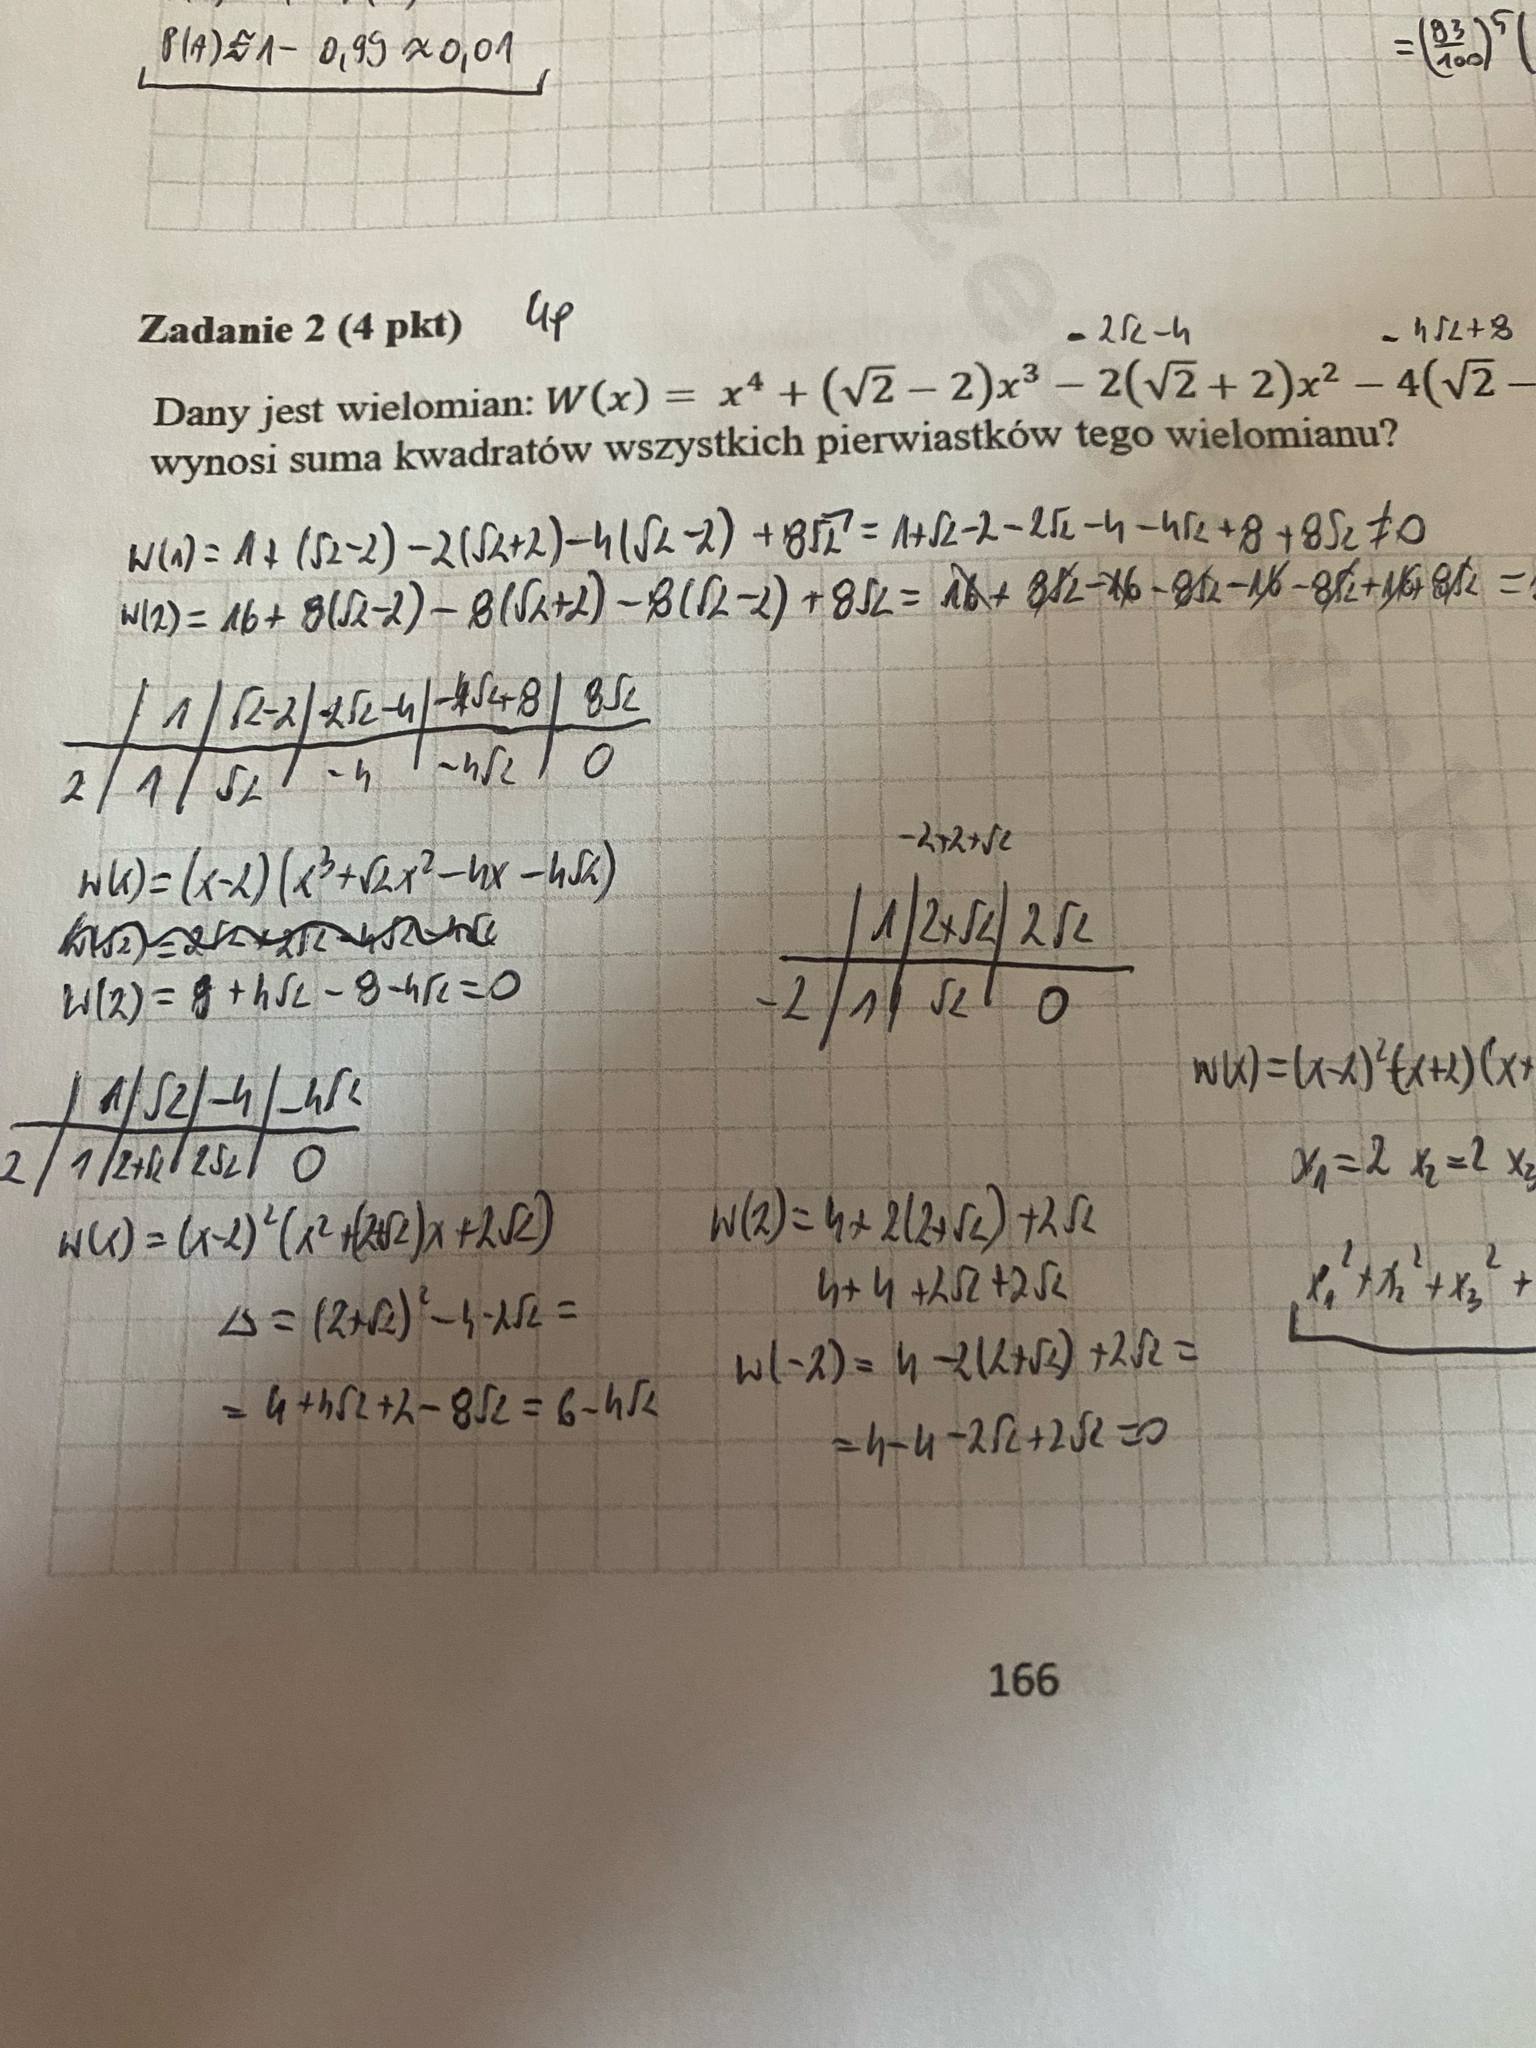 P(A)≈1- 0,99 ≈0,01
=(93/100)^5 (
Zadanie 2 (4 pkt) 4p
- 2√2-4 - 4√2+8
Dany jest wielomian: W(x) = x⁴ + (√2 − 2)x³ − 2(√2 + 2)x² − 4(√2 −
wynosi suma kwadratów wszystkich pierwiastków tego wielomianu?
W(1)= 1+ (√2-2) -2(√2+2)-4(√2-2) +8√2 = 1+√2-2-2√2-4-4√2+8+8√2≠0
W(2)= 16+ 8(√2-2) - 8(√2+2) -8(√2-2) +8√2 = 16+ 8√2-16-8√2-16-8√2+16+8√2 =
| 1 | √2-2 | -2√2-4 | -4√2+8 | 8√2
2 | 1 | √2 | -4 | -4√2 | 0
W(x)=(x-2)(x³+√2x²-4x-4√2)
W(√2)=2√2+2√2-4√2-4√2
W(2)= 8+4√2-8-4√2=0
-2+2+√2
| 1 | 2+√2 | 2√2
-2 | 1 | √2 | 0
| 1 | √2 | -4 | -4√2
2 | 1 | 2+√2 | 2√2 | 0
W(x)=(x-2)²(x+2)(x+
x₁=2 x₂=2 x₃
x₁²+x₂²+x₃²+
W(x)=(x-2)²(x²+(2+√2)x+2√2)
Δ=(2+√2)²-4·2√2=
= 4+4√2+2-8√2=6-4√2
W(2)=4+2(2+√2)+2√2
4+4+2√2+2√2
W(-2)= 4-2(2+√2)+2√2=
=4-4-2√2+2√2=0
166